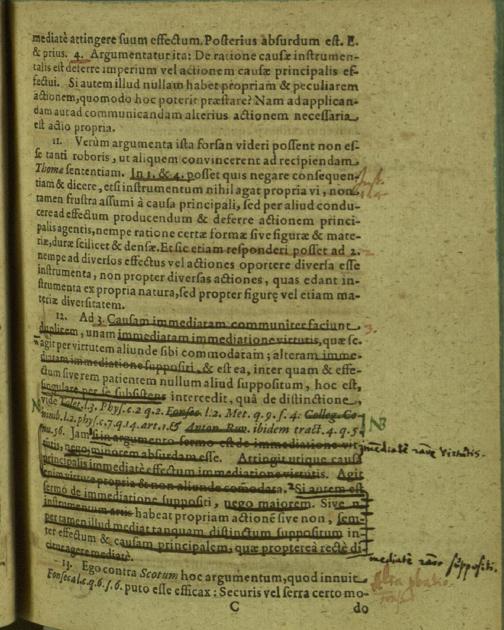 mediatè attingere suum effectum. Posterius absurdum est. E.
& prius. 4. Argumentatur ita: De ratione causæ instrumen-
talis est deferre imperium vel actionem causæ principalis ef-
fectui. Si autem illud nullam habet propriam & peculiarem
actionem, quomodo hoc poterit præstare? Nam ad applican-
dam aut ad communicandam alterius actionem necessaria
est actio propria.
11. Verùm argumenta ista forsan videri possent non es-
se tanti roboris, ut aliquem convincerent ad recipiendam
Thomæ sententiam. In 1. & 4. posset quis negare consequen-
tiam & dicere, etsi instrumentum nihil agat propria vi, non
tamen frustra assumi à causa principali, sed per aliud condu-
cere ad effectum producendum & deferre actionem princi-
palis agentis, nempe ratione certæ formæ sive figuræ & mate-
riæ, duræ scilicet & densæ. Et sic etiam responderi posset ad 2.
nempe ad diversos effectus vel actiones oportere diversa esse
instrumenta, non propter diversas actiones, quas edant in-
strumenta ex propria natura, sed propter figuræ vel etiam ma-
teriæ diversitatem.
12. Ad 3. Causam immediatam communiter faciunt
3.
duplicem, unam immediatam immediatione virtutis, quæ sc.
agit per virtutem aliunde sibi commodatam; alteram imme-
diatam immediatione suppositi, & est ea, inter quam & effe-
ctum sive rem patientem nullum aliud suppositum, hoc est,
singulare per se subsistens intercedit, quâ de distinctione,
vide Tolet. l. 3. Phys. c. 2 q. 2. Fonsec. l. 2. Met. q. 9. s. 4: Colleg. Co-
nimb. l. 2. phys. c. 7. q. 14. art. 1. & Anton. Ruv. ibidem tract. 4. q. 5.
NB
nu. 56. Jam si in argumento sermo est de immediatione vir-
tutis, nego minorem absurdam esse. Attingit utique causa
mediatè ratione virtutis.
principalis immediatè effectum immediatione virtutis. Agit
enim virtute propria & non aliunde comodata. Si autem est
sermo de immediatione suppositi, nego majorem. Sive n.
instrumentum artis habeat propriam actionē sive non, sem-
per tamen illud mediat tanquam distinctum suppositum in-
ter effectum & causam principalem, quæ propterea rectè di-
citur agere mediatè.
mediatè ratione suppositi.
13. Ego contra Scotum hoc argumentum, quod innuit
Fonseca l. c. q. 6. s. 6. puto esse efficax: Securis vel serra certo mo-
C
do